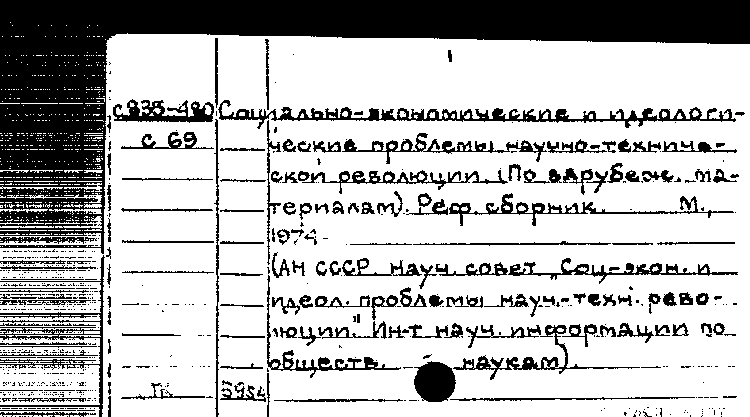 с835-480 Социально-экономические и идеологи-
с 69 ческие проблемы научно-техниче-
ской революции. (По зарубеж. ма-
териалам). Реф. сборник. М.,
1974-
(АН СССР. Науч. совет „Соц-экон. и
идеол. проблемы науч.-техн. рево-
люции." Ин-т науч. информации по
обществ. наукам).